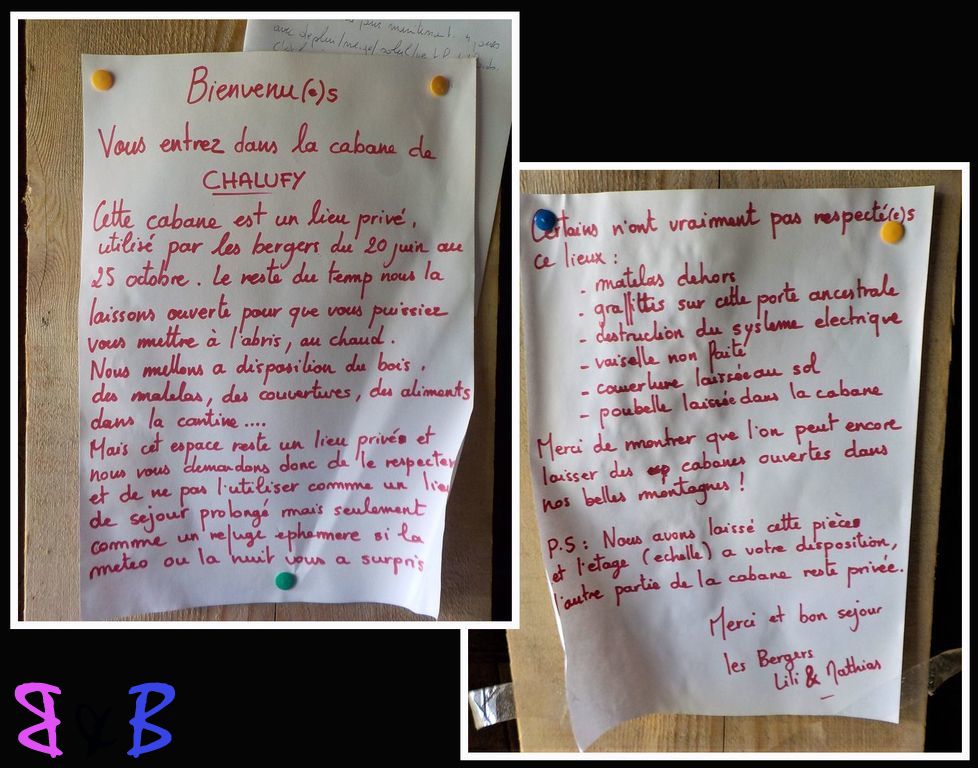 Bienvenu(e)s
Vous entrez dans la cabane de
CHALUFY
Cette cabane est un lieu privé,
utilisé par les bergers du 20 juin au
25 octobre. Le reste du temp nous la
laissons ouverte pour que vous puissiez
vous mettre à l'abris, au chaud.
Nous mettons a disposition du bois,
des matelas, des couvertures, des aliments
dans la cantine....
Mais cet espace reste un lieu privé et
nous vous demandons donc de le respecter
et de ne pas l'utiliser commme un lieu
de sejour prolongé mais seulement
comme un refuge ephemere si la
meteo ou la nuit vous a surpris
Certains n'ont vraiment pas respecté(e)s
ce lieux :
- matelas dehors
- graffittis sur cette porte ancestrale
- destruction du systeme electrique
- vaiselle non faite
- couverture laissée au sol
- poubelle laissée dans la cabane
Merci de montrer que l'on peut encore
laisser des cabanes ouvertes dans
nos belles montagnes !
P.S : Nous avons laissé cette pièces
et l'etage (echelle) a votre disposition,
l'autre partie de la cabane reste privée.
Merci et bon sejour
les Bergers
Lili & Mathias
B & B